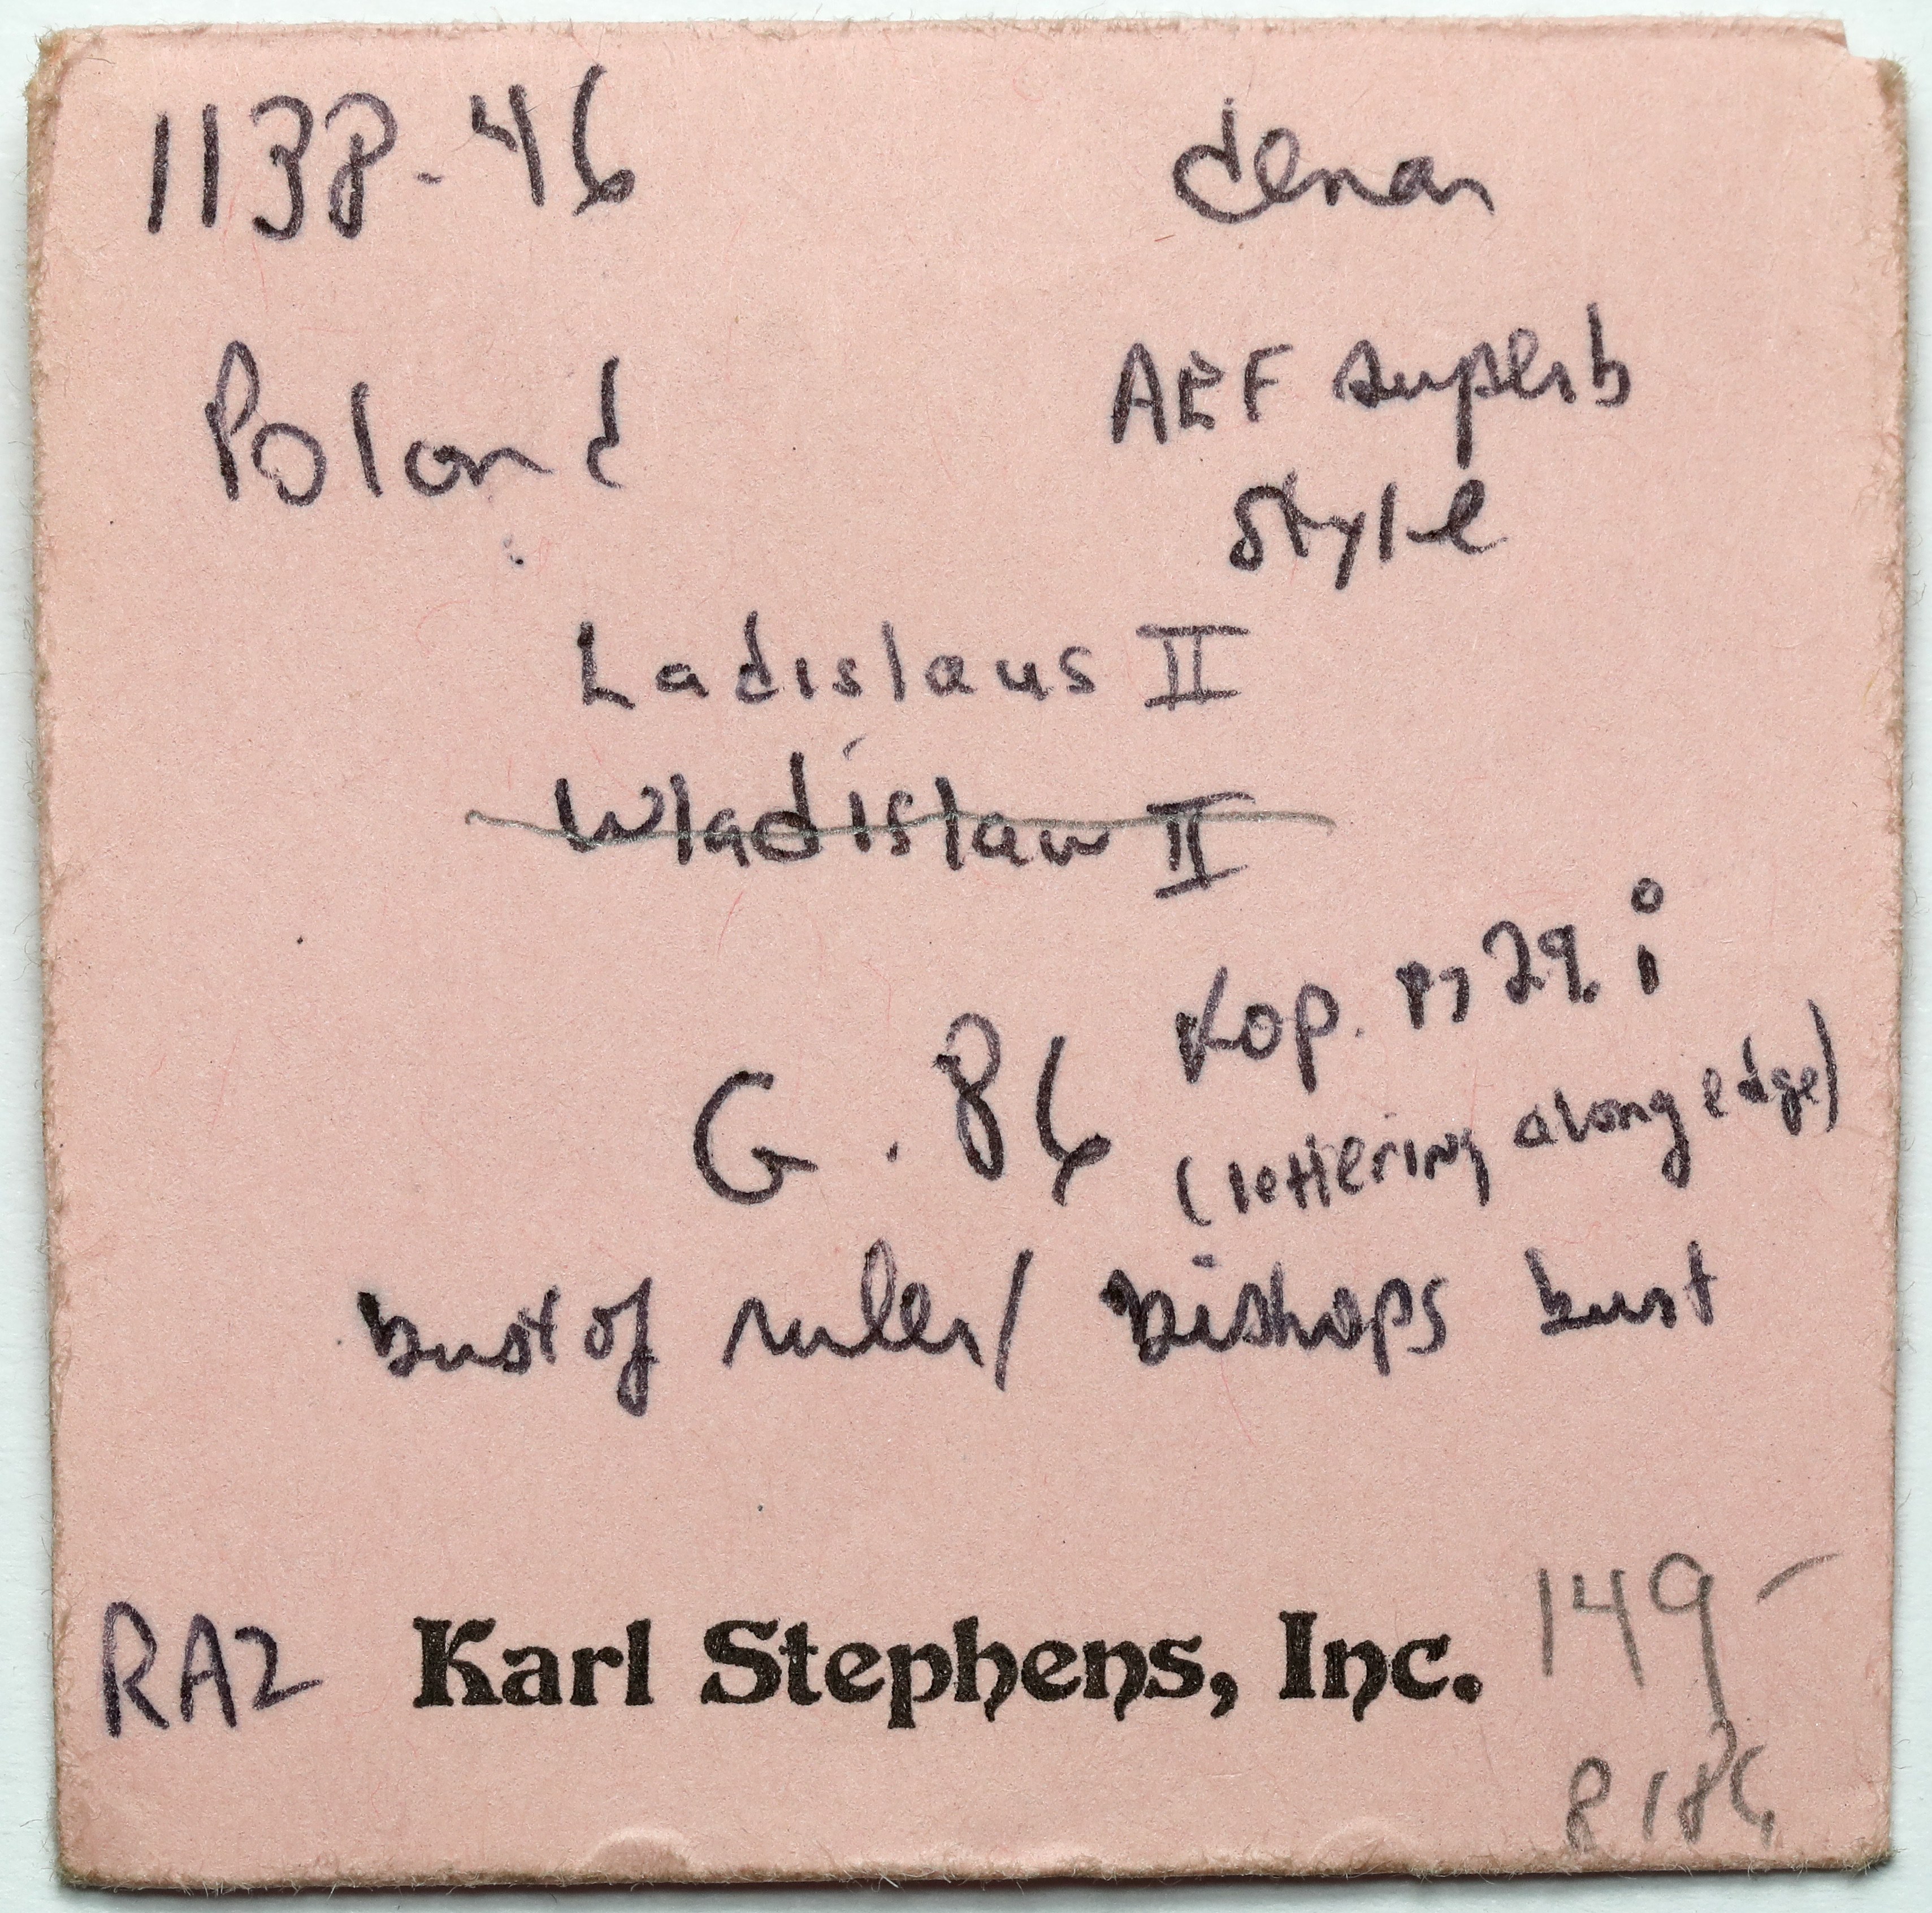 1138-46 denar
Poland AEF superb
style
Ladislaus II
Wladislaw II
Kop. P7 29. i
G. 86 (lettering along edge)
bust of ruler/ bishops bust
RA2 Karl Stephens, Inc. 149-
8186